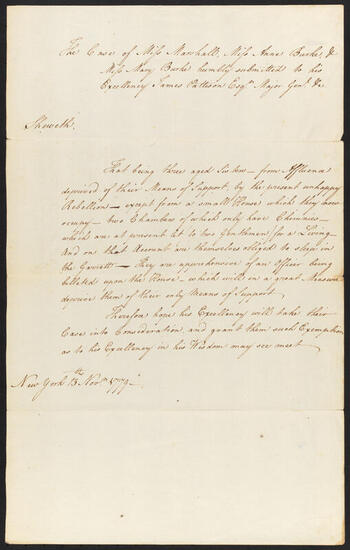 The Case of Miss Marshall, Miss Anne Burke, &
Miss Mary Burke humbly submitted to his
Excellency James Pattison Esqr. Major Genl. &c
Sheweth,
That being three aged Sisters — from Affluence
deprived of their Means of Support, by the present unhappy
Rebellion — except from a small House which they now
occupy — two Chambers of which only have Chimnies —
which are at present let to two Gentlemen for a Living
And on that Account are themselves obliged to sleep in
the Garrett — They are apprehensive of an Officer being
billeted upon the House, which will in a great Measure
deprive them of their only Means of Support
Therefore hope his Excellency will take their
Case into Consideration, and grant them such Exemption
as to his Excellency in his Wisdom may see meet
New York 13th Novr. 1779